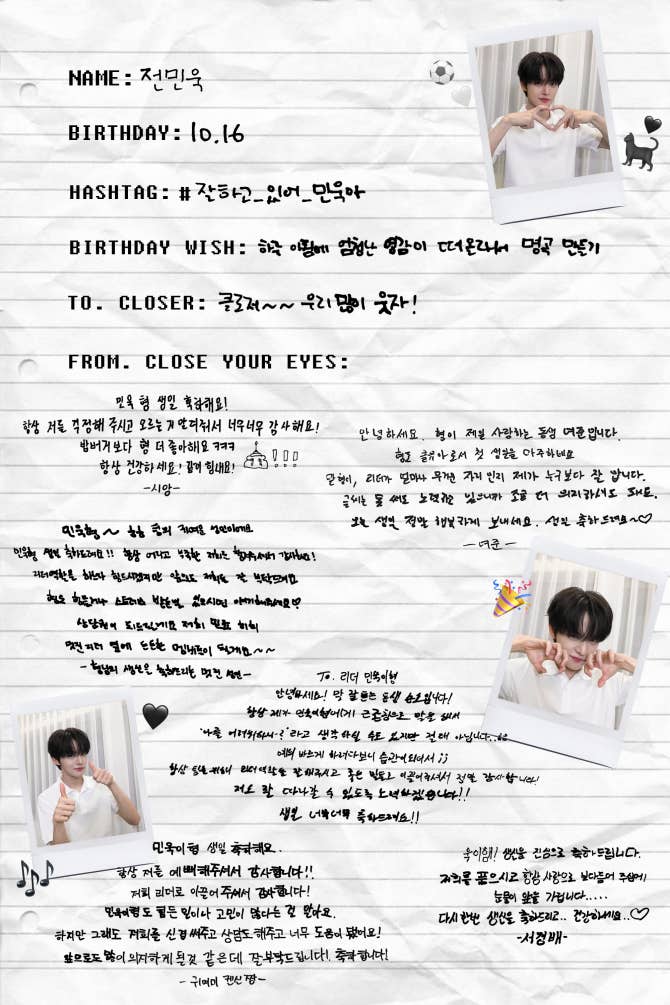 NAME: 전민욱
BIRTHDAY: 10.16
HASHTAG: #잘하고_있어_민욱아
BIRTHDAY WISH: 하루 아침에 엄청난 영감이 떠올라서 명곡 만들기
TO. CLOSER: 클로저~~ 우리 많이 웃자!
FROM. CLOSE YOUR EYES:
민욱 형 생일 축하해요!
항상 저를 걱정해 주시고 모르는거 알려줘서 너무너무 감사해요!
밥버거보다 형 더 좋아해요 ㅋㅋㅋ
항상 건강하세요! 끝까지 힘내요!
!!!
-시양-
안녕하세요. 형이 제일 사랑하는 동생 여준입니다.
형도 클유아로서 첫 생일을 마주하네요
맏형이, 리더가 얼마나 무거운 자리인지 제가 누구보다 잘 압니다.
오늘 생일 정말 행복하게 보내세요. 생일 축하드려요~♡
-여준-
민욱형~ 항상 귀여운 성민이에요
민욱형 생일 축하드려요!! 항상 어리고 부족한 저희를 챙겨주셔서 감사해요!
리더역할을 하느라 힘드시겠지만 앞으로도 저희를 잘 부탁드려요
혹시 힘들거나 스트레스 받는일 있으시면 얘기해주세요♡
상담원이 되드릴게요 저희 히히
멋진 리더 옆에 든든한 멤버들이 될게요~~
-형님의 생일을 축하드리는 멋진 성민-
To. 리더 민욱이형
안녕하세요! 말 잘 듣는 동생 승호입니다!
항상 제가 민욱이형에게 극존칭으로 말을 해서
'나를 어려워하나..?'라고 생각하실 수도 있지만 전혀 아닙니다..!
예의 바르게 하려다보니 습관이 되어서 ;;
항상 팀을 위해 리더역할을 잘 해주시고 좋은 말도 이끌어주셔서 정말 감사합니다!
저도 잘 따라갈 수 있도록 노력하겠습니다!!
생일 너무너무 축하드려요!!
민욱이형 생일 축하해요.
항상 저를 예뻐해주셔서 감사합니다!!
저희 리더로 이끌어주셔서 감사합니다!
민욱이형도 힘든 일이나 고민이 많다는 걸 알아요.
하지만 그래도 저희를 신경써주고 상담도 해주고 너무 도움이 됐어요!
앞으로도 많이 의지하게 될것 같은데 잘 부탁드립니다! 축하합니다!
- 귀여미 켄신 짱 -
욱이햄! 생신을 진심으로 축하드립니다.
저희를 품으시고 항상 사랑으로 보다듬어 주심에
눈물이 앞을 가립니다.....
다시 한번 생신을 축하드리고.. 건강하세요..♡
-서경배-